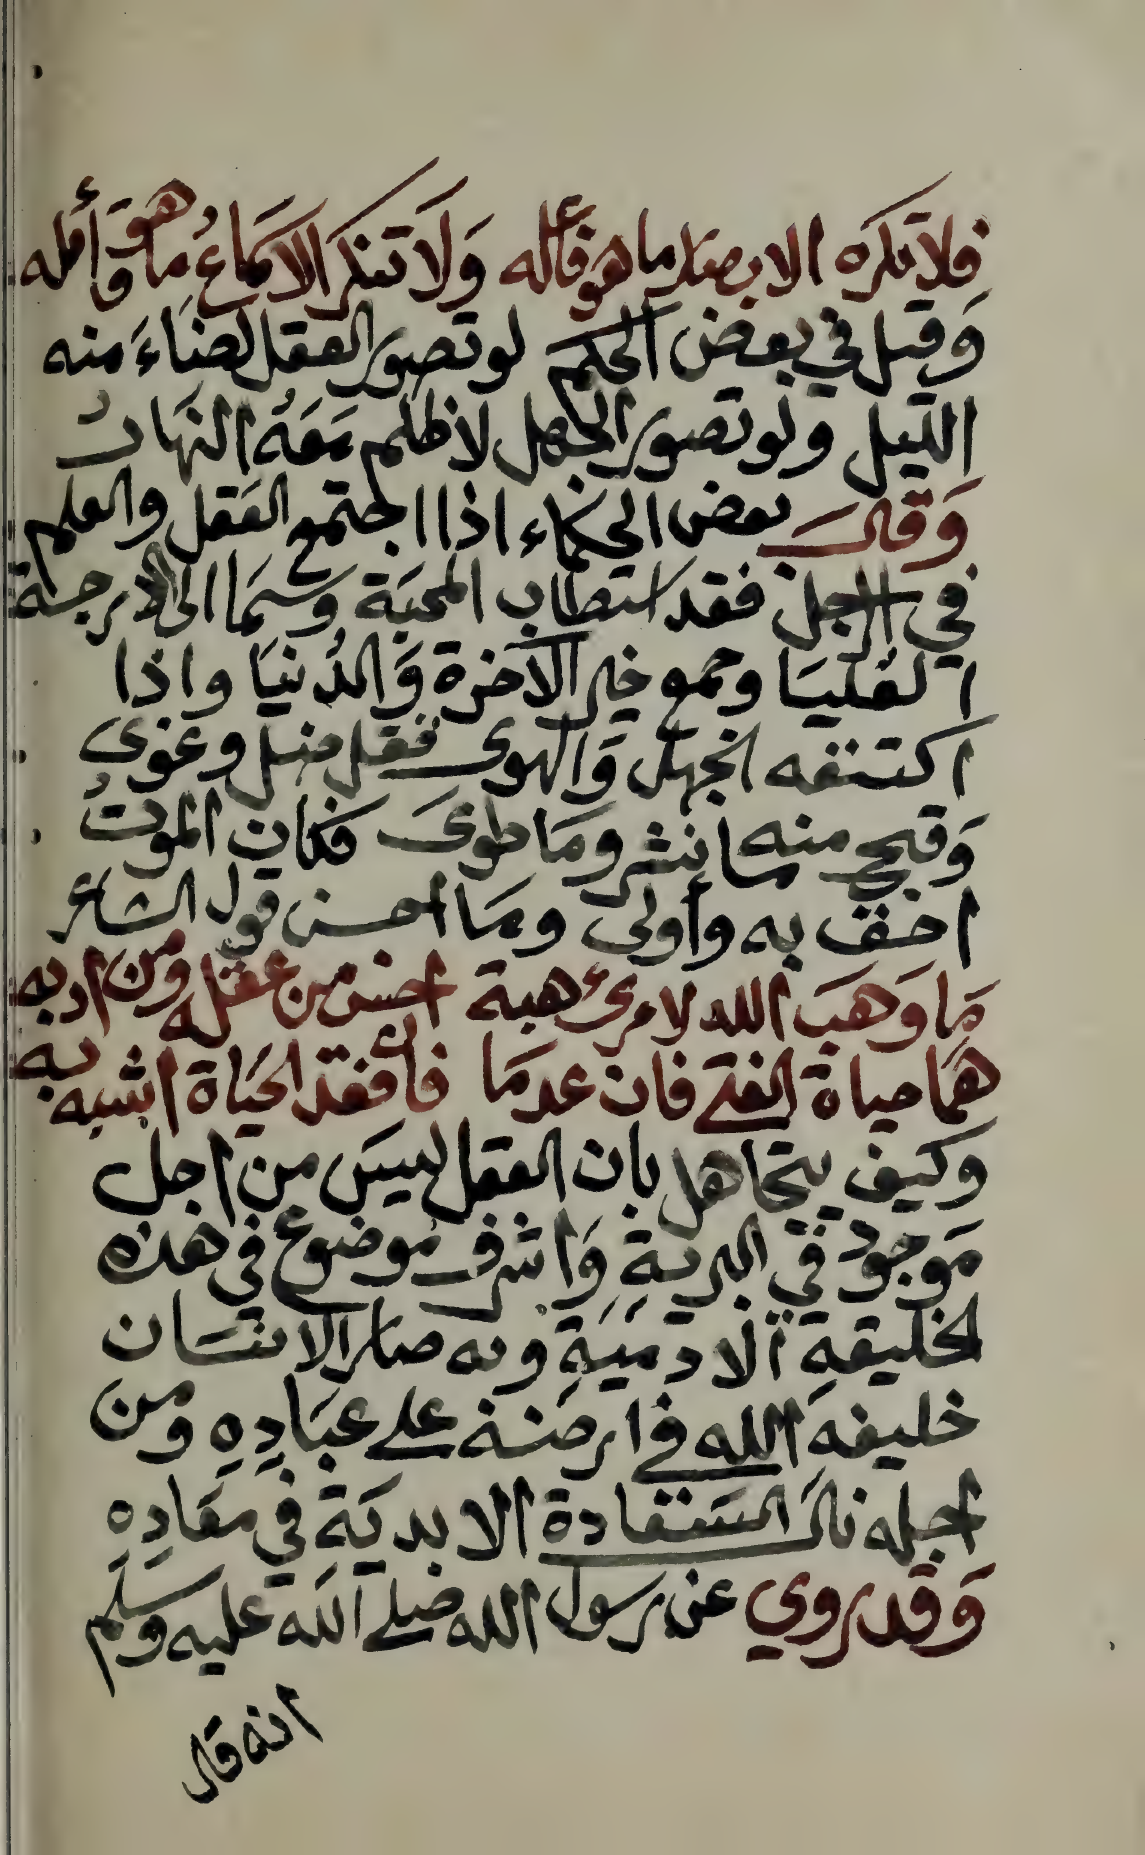 فلا تكره الابصار ما هو فأعله وَلَا تنكر الاسماعُ ما هوَ قَأئله
وَقيل في بعض الحكم لو تصور العقل لضَاءَ منه
الليل ولو تصور الجهل لاظلم مَعَهُ النهارُ
وَقال بعض الحكماء اذا اجتمع العَقل والعلم
في الرجل فقد استطاب المحيَة وسَمَا الى الدرجة
العُليَا وجمع خير الآخرة وَالدُنيَا واذا
اكتنفه الجهل وَالهوى فقل ضل وغوى
وَقبح منه ما نشر ومَا طوى فكان الموتُ
اخف به وأولى ومَا احسن قول الشاعر
مَا وَهَبَ الله لامرئ هبة احسن من عقله ومن ادبه
هُمَا حياة الفتى فان عدمَا فأن فقد الحيَاة اشبه به
وكيف يتجاهل بان العقل ليسَ من اجل
مَوجود في البرية وَاشرف مُوضوع في هذه
الخليقة الادميَةِ وبه صار الانسَان
خليفة الله في ارضه على عبَادِهِ ومن
اجله نال السَعَادة الابديَة في معَادِهِ
وَقد روي عن رسول الله صلى الله عليه وسَلم
انه قال